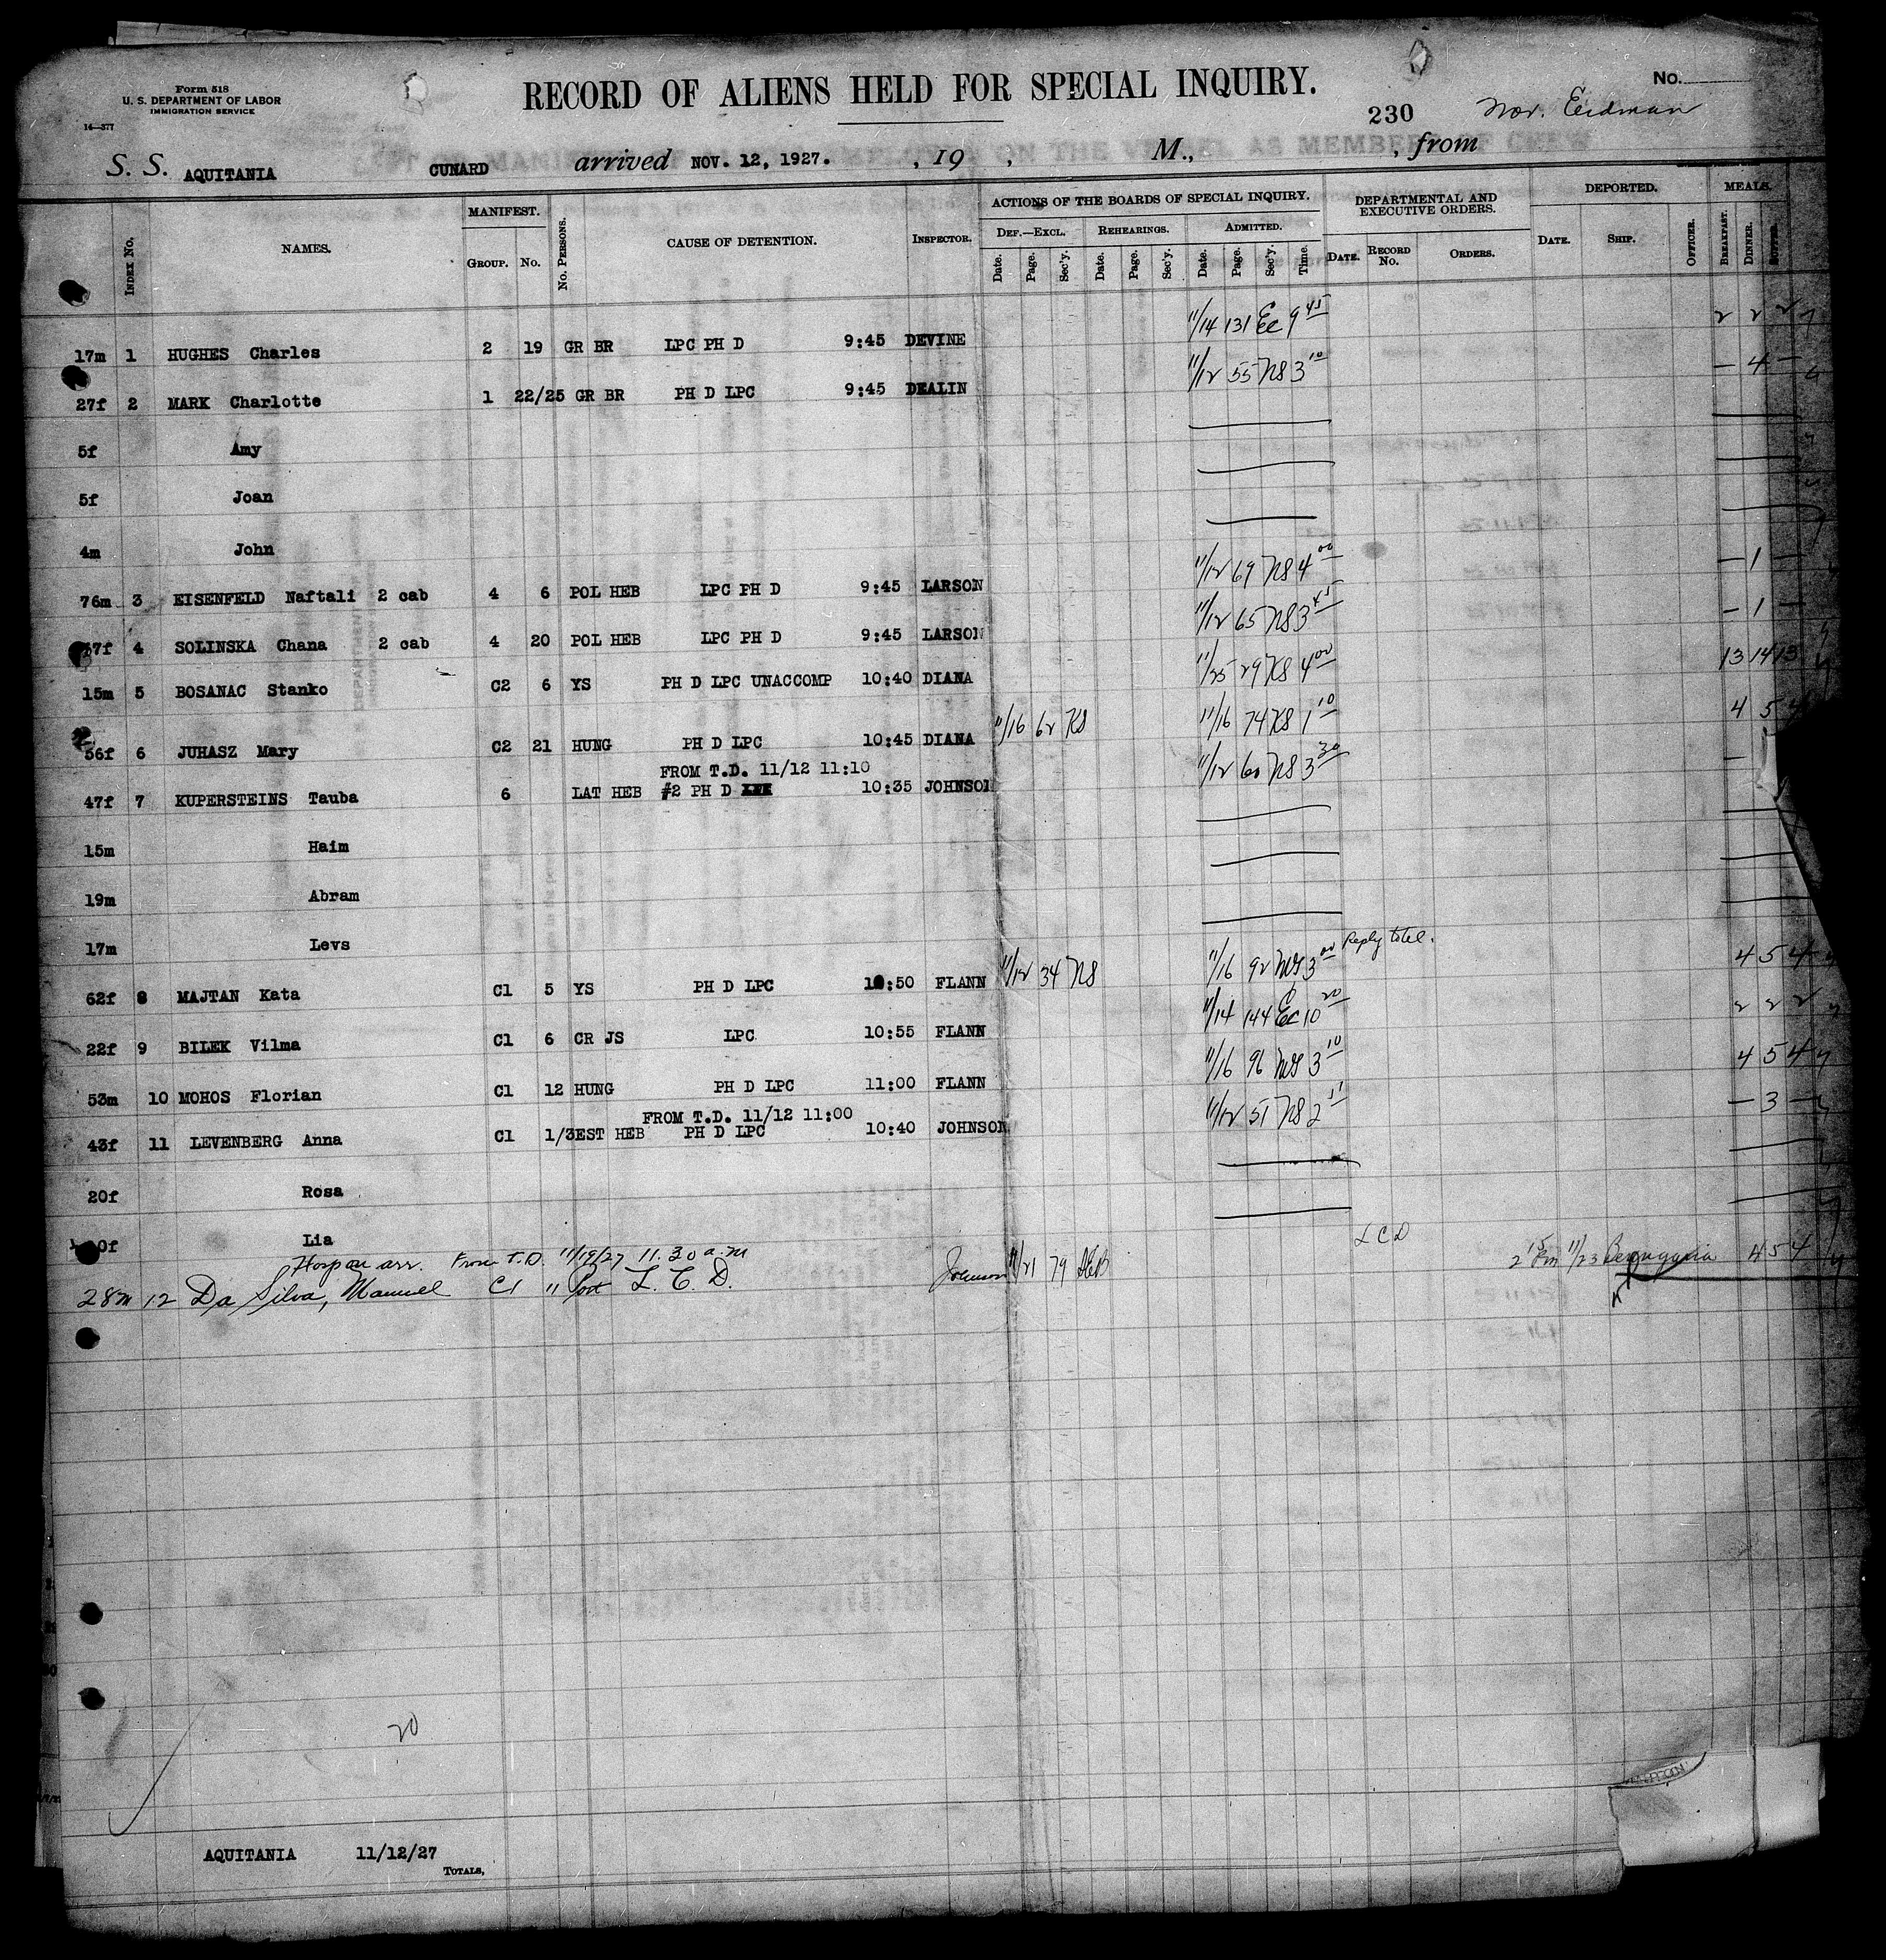 Form 518
U. S. DEPARTMENT OF LABOR
IMMIGRATION SERVICE
14—377
RECORD OF ALIENS HELD FOR SPECIAL INQUIRY.
No.
230
S. S. AQUITANIA CUNARD arrived NOV. 12, 1927. , 19 , M., , from
INDEX NO. NAMES. MANIFEST. GROUP. NO. NO. PERSONS. CAUSE OF DETENTION. INSPECTOR. ACTIONS OF THE BOARDS OF SPECIAL INQUIRY. DEF.—EXCL. REHEARINGS. ADMITTED. DEPARTMENTAL AND EXECUTIVE ORDERS. DEPORTED. MEALS.
Date. Page. Sec'y. Date. Page. Sec'y. Date. Page. Sec'y. Time. DATE. RECORD NO. ORDERS. DATE. SHIP. OFFICER. BREAKFAST. DINNER. SUPPER.
17m 1 HUGHES Charles 2 19 GR BR LPC PH D 9:45 DEVINE 11/14 131 EC 9 45 2 2 2
27f 2 MARK Charlotte 1 22/25 GR BR PH D LPC 9:45 DEALIN 11/12 55 NS 3 10 — 4 —
5f Amy
5f Joan
4m John
76m 3 EISENFELD Naftali 2 cab 4 6 POL HEB LPC PH D 9:45 LARSON 11/12 69 NS 4 00 — 1 —
7f 4 SOLINSKA Chana 2 cab 4 20 POL HEB LPC PH D 9:45 LARSON 11/12 65 NS 3 45 — 1 —
15m 5 BOSANAC Stanko C2 6 YS PH D LPC UNACCOMP 10:40 DIANA 11/25 29 KS 4 00 13 14 13
56f 6 JUHASZ Mary C2 21 HUNG PH D LPC 10:45 DIANA 11/16 62 KS 11/16 74 KS 1 10 4 5 4
FROM T.D. 11/12 11:10
47f 7 KUPERSTEINS Tauba 6 LAT HEB #2 PH D 10:35 JOHNSON 11/12 60 NS 3 30 —
15m Haim
19m Abram
17m Levs
62f 8 MAJTAN Kata C1 5 YS PH D LPC 10:50 FLANN 11/12 34 NS 11/16 92 3 00 Reply to tel. 4 5 4
22f 9 BILEK Vilma C1 6 CR JS LPC 10:55 FLANN 11/14 144 EC 10 20 2 2 2
53m 10 MOHOS Florian C1 12 HUNG PH D LPC 11:00 FLANN 11/16 96 3 10 4 5 4
FROM T.D. 11/12 11:00
43f 11 LEVENBERG Anna C1 1/3 EST HEB PH D LPC 10:40 JOHNSON 11/12 51 NS 2 — 3 —
20f Rosa
0f Lia
Hosp on arr. From T.D. 11/19/27 11.30 a.m
28m 12 Da Silva, Manuel C1 " Port L. C. D. Johnson 11/21 79 LCD 2 15 Pm 11/23 4 5 4
20
AQUITANIA 11/12/27
TOTALS,